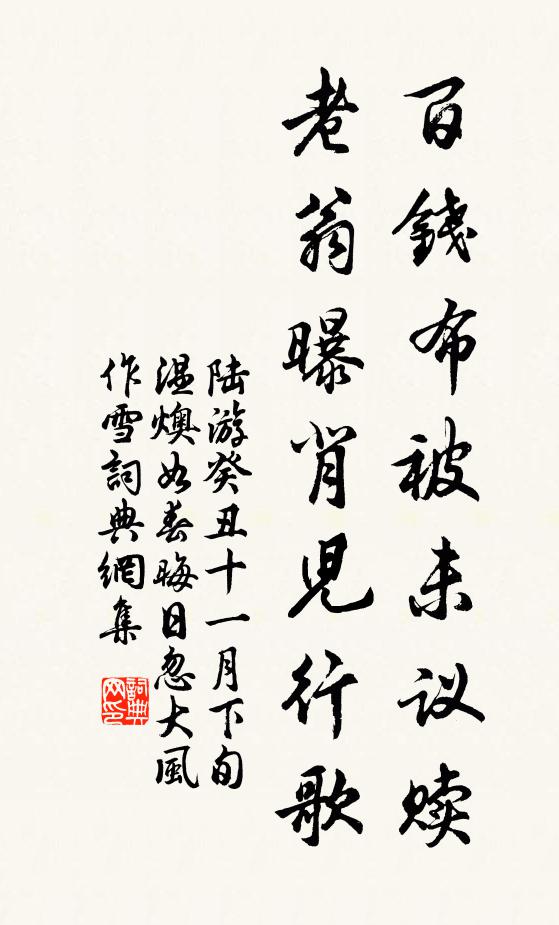 百錢布被未议赎
老翁曝背児行歌
陆游癸丑十一月下旬
温燠如春晦日忽大風
作雪詞典網集
詞典
网印